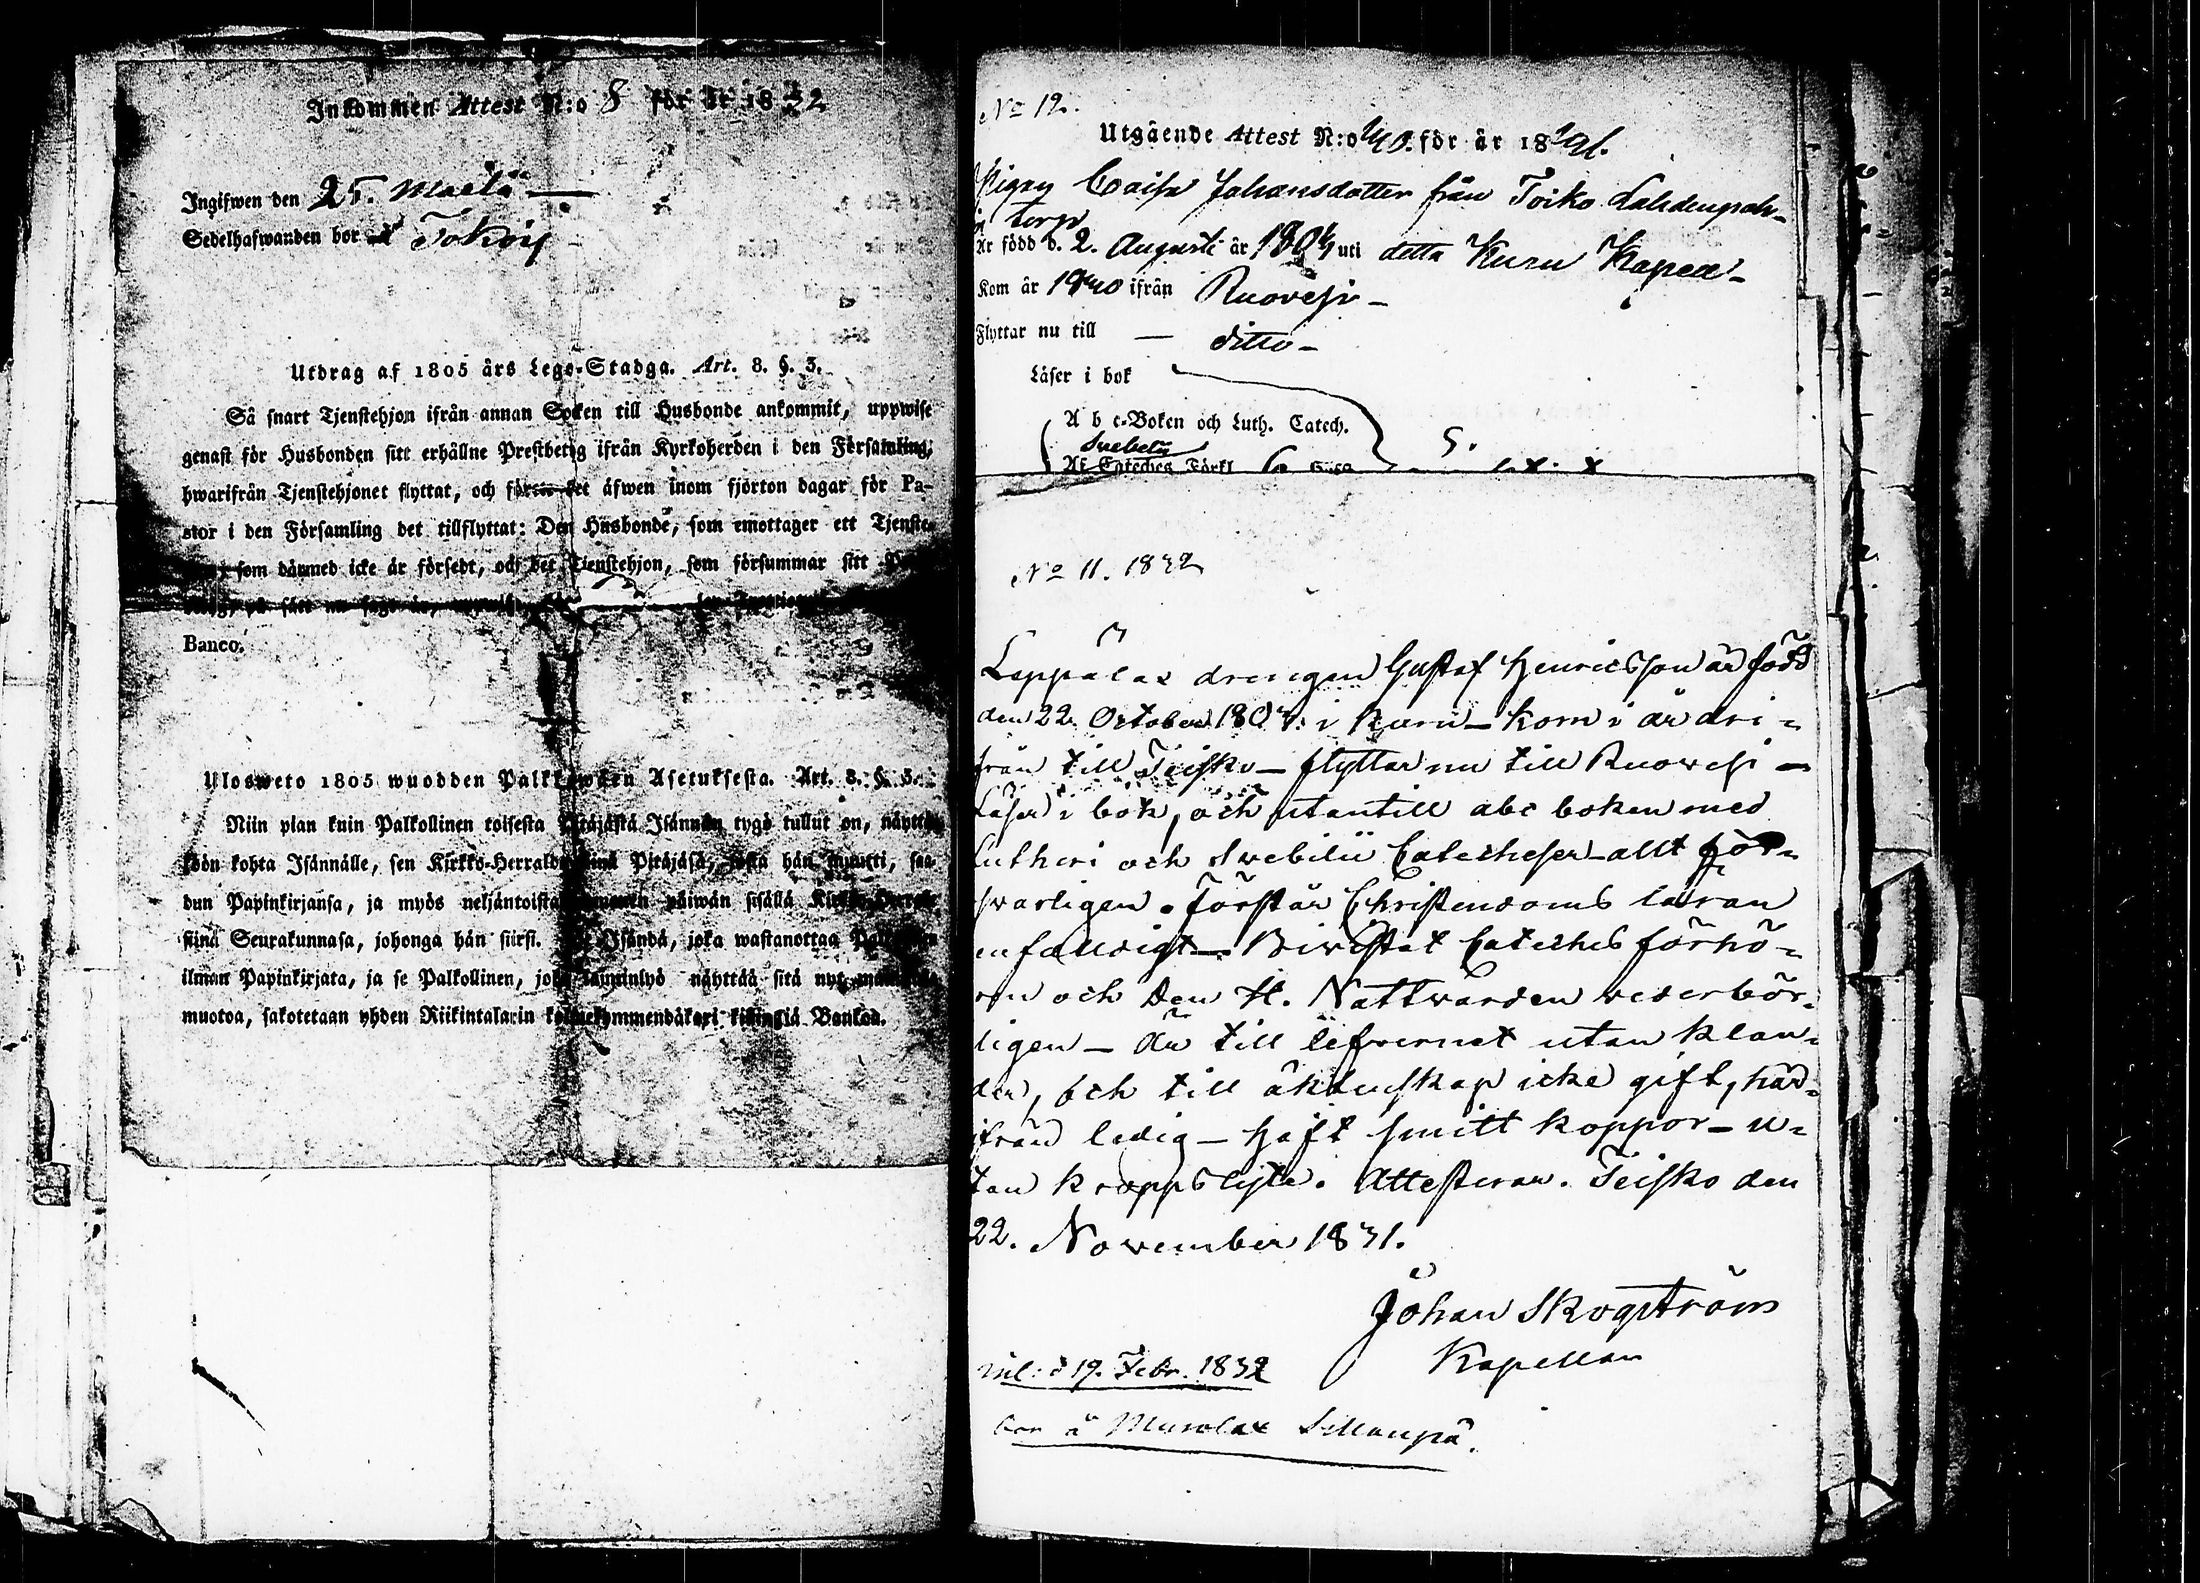 Inkommen Attest N:o 8 för år 1832
Ingifwen den 25. Martii
Sedelhafwanden bor å Tokois
Utdrag af 1805 års Lego-Stadga. Art. 8. §. 3.
Så snart Tjenstehjon ifrån annan Socken till Husbonde ankommit, uppwise
genast för Husbonden sitt erhållne Prestbetyg ifrån Kyrkoherden i den Församling,
hwarifrån Tjenstehjonet flyttat, och förete det äfwen inom fjorton dagar för Pa-
stor i den Församling det tillflyttat: Den Husbonde, som emottager ett Tjenste-
som därmed icke är försedt, och det Tjenstehjon, som försummar sitt
på sätt nu sagt är, uppwisa
Banco.
Ulosweto 1805 wuodden Palkkawäen Asetuksesta. Art. 8. §. 3.
Niin pian kuin Palkollinen toisesta Pitäjästä Isännän tygö tullut on, näyttä-
köön kohta Isännälle, sen Kirkko-Herralda siinä Pitäjäsä, josta hän muutti, saa-
dun Papinkirjansa, ja myös neljäntoista päiwän sisällä Kirkko-Herralle
siinä Seurakunnasa, johonga hän siirsi. Isändä, joka wastanottaa Palkollisen
ilman Papinkirjata, ja se Palkollinen, joka laiminlyö näyttää sitä nyt
muotoa, sakotetaan yhden Riikintalarin kolmekymmendäkaxi killingiä Bankoa.
No 12.
Utgående Attest N:o 40. för år 1831.
Pigan Caisa Johansdotter från Toiko Lahdenpoh-
ja torp
Är född d. 2. Augusti år 1804 uti detta Kuru Kapell-
Kom år 1830 ifrån Ruovesi -
Flyttar nu till — ditto -
Läser i bok
A b c-Boken och Luth. Catech.
Svebelii
Af Cateches Förkl
No 11. 1832
Leppälax drengen Gustaf Henricsson är född
den 22. October 1807. i Kuru - kom i år dri=
från till Teisko - flyttar nu till Ruovesi -
Läser i bok, och utantill abc boken med
Lutheri och Svebilii Catecheser - allt för=
svarligen. Förstår Christendoms läran
enfaldigt - Bivistat Cateches förhö=
ren och den H. Nattvarden vederbör=
ligen - Är till lefvernet utan klan=
der, och till äktenskap icke gift, här=
ifrån ledig - haft smitt koppor - u=
tan kroppslyte. Attesterar. Teisko den
22. November 1831.
Johan Skogström
Kapellan
inl: d 19. Febr. 1832
bor å Murolax Sillanpä.